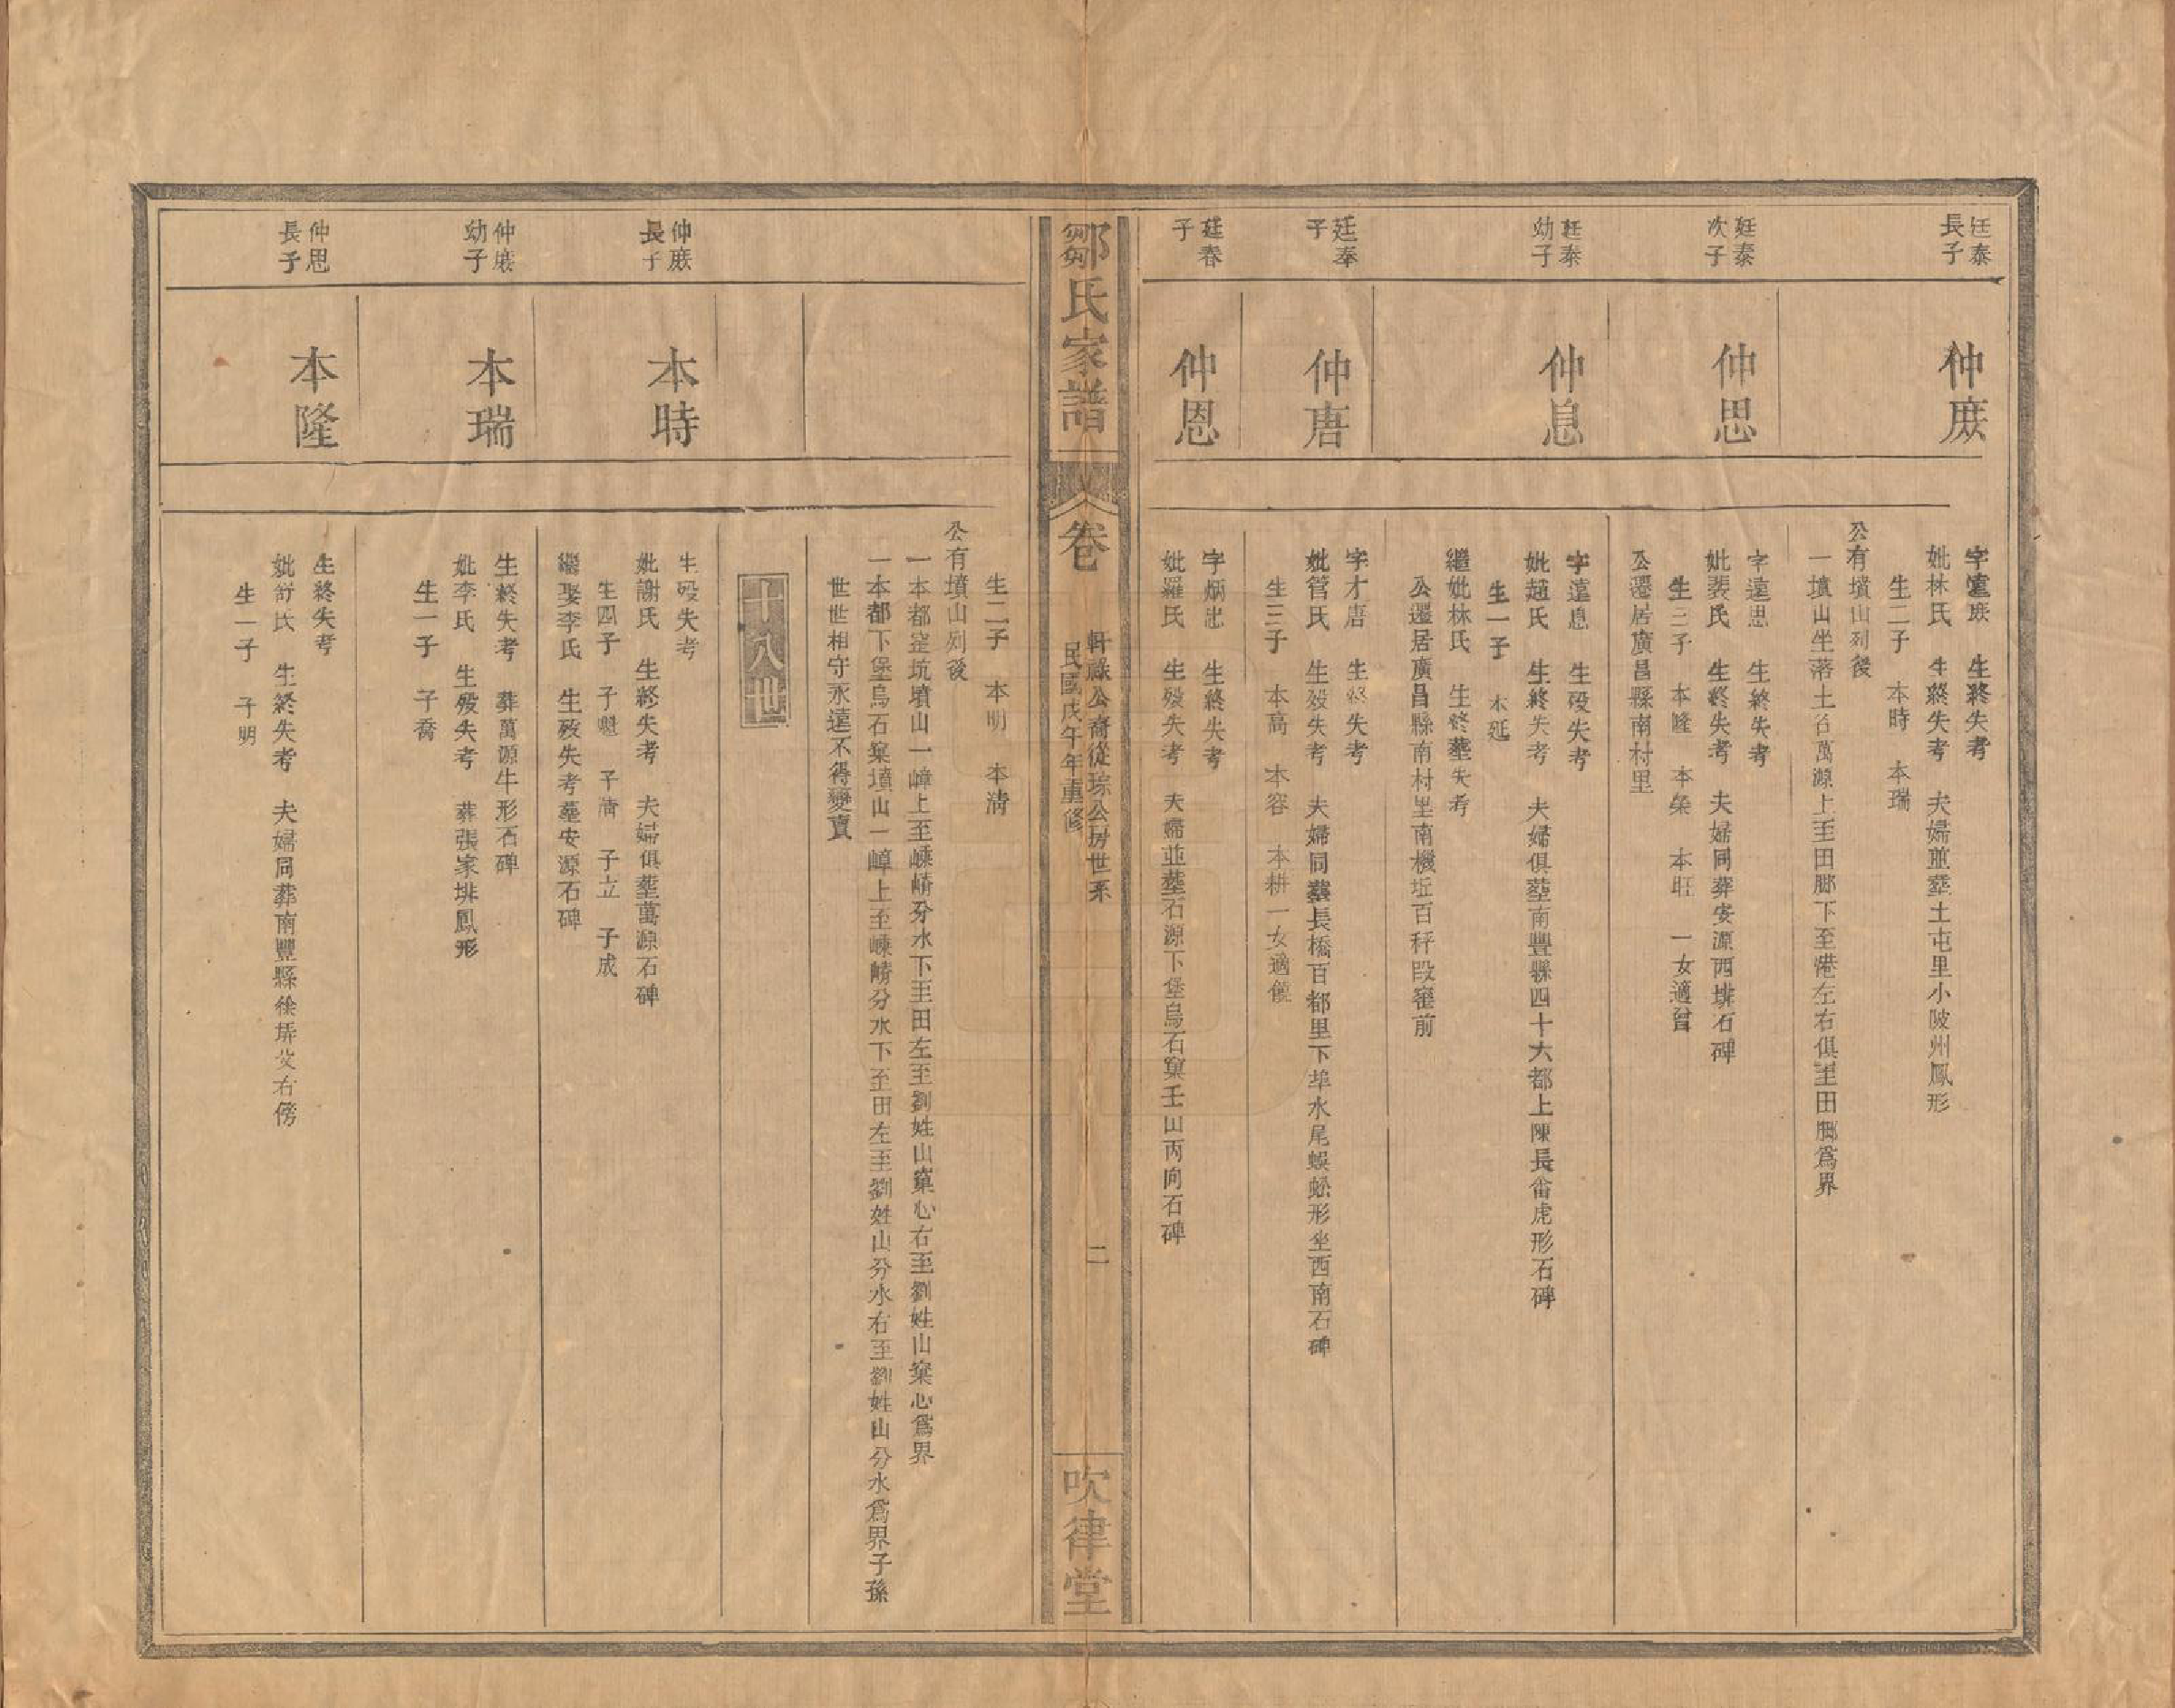 廷泰
長子
仲庶
字遠庶　生終失考
妣林氏　生終失考　夫婦並塟土屯里小陂州鳳形
生二子　本時　本瑞
公有墳山列後
一墳山坐落土名萬源上至田脚下至港左右俱至田脚爲界
廷泰
次子
仲思
字遠思　生終失考
妣裴氏　生終失考　夫婦同葬安源西排石碑
生三子　本隆　本榮　本旺　一女適曾
公遷居廣昌縣南村里
廷泰
幼子
仲息
字遠息　生歿失考
妣趙氏　生終失考　夫婦俱塟南豐縣四十六都上陳長窩虎形石碑
生一子　本延
繼妣林氏　生終塟失考
公遷居廣昌縣南村里南機坵百秤段窰前
廷奉
子
仲唐
字才唐　生終失考
妣管氏　生歿失考　夫婦同塟長橋百都里下埠水尾蜈蚣形坐西南石碑
生三子　本高　本容　本耕一女適饒
廷春
子
仲恩
字炳忠　生終失考
妣羅氏　生歿失考　夫婦並塟石源下堡烏石窠壬山丙向石碑
鄒氏家譜
卷
軒祿公裔從琮公房世系
民國戊午年重修
二
吹律堂
生二子　本明　本清
公有墳山列後
一本都窰坑墳山一嶂上至嵊嵴分水下至田左至劉姓山窠心右至劉姓山窠心爲界
一本都下堡烏石窠墳山一嶂上至嵊嵴分水下至田左至劉姓山分水右至劉姓山分水爲界子孫
世世相守永遠不得變賣
十八世
仲庶
長子
本時
生歿失考
妣謝氏　生終失考　夫婦俱塟萬源石碑
生四子　子魁　子清　子立　子成
繼娶李氏　生歿失考塟安源石碑
仲庶
幼子
本瑞
生終失考　葬萬源牛形石碑
妣李氏　生歿失考　葬張家排鳳形
生一子　子喬
仲思
長子
本隆
生終失考
妣舒氏　生終失考　夫婦同葬南豐縣徐坊父右傍
生一子　子明